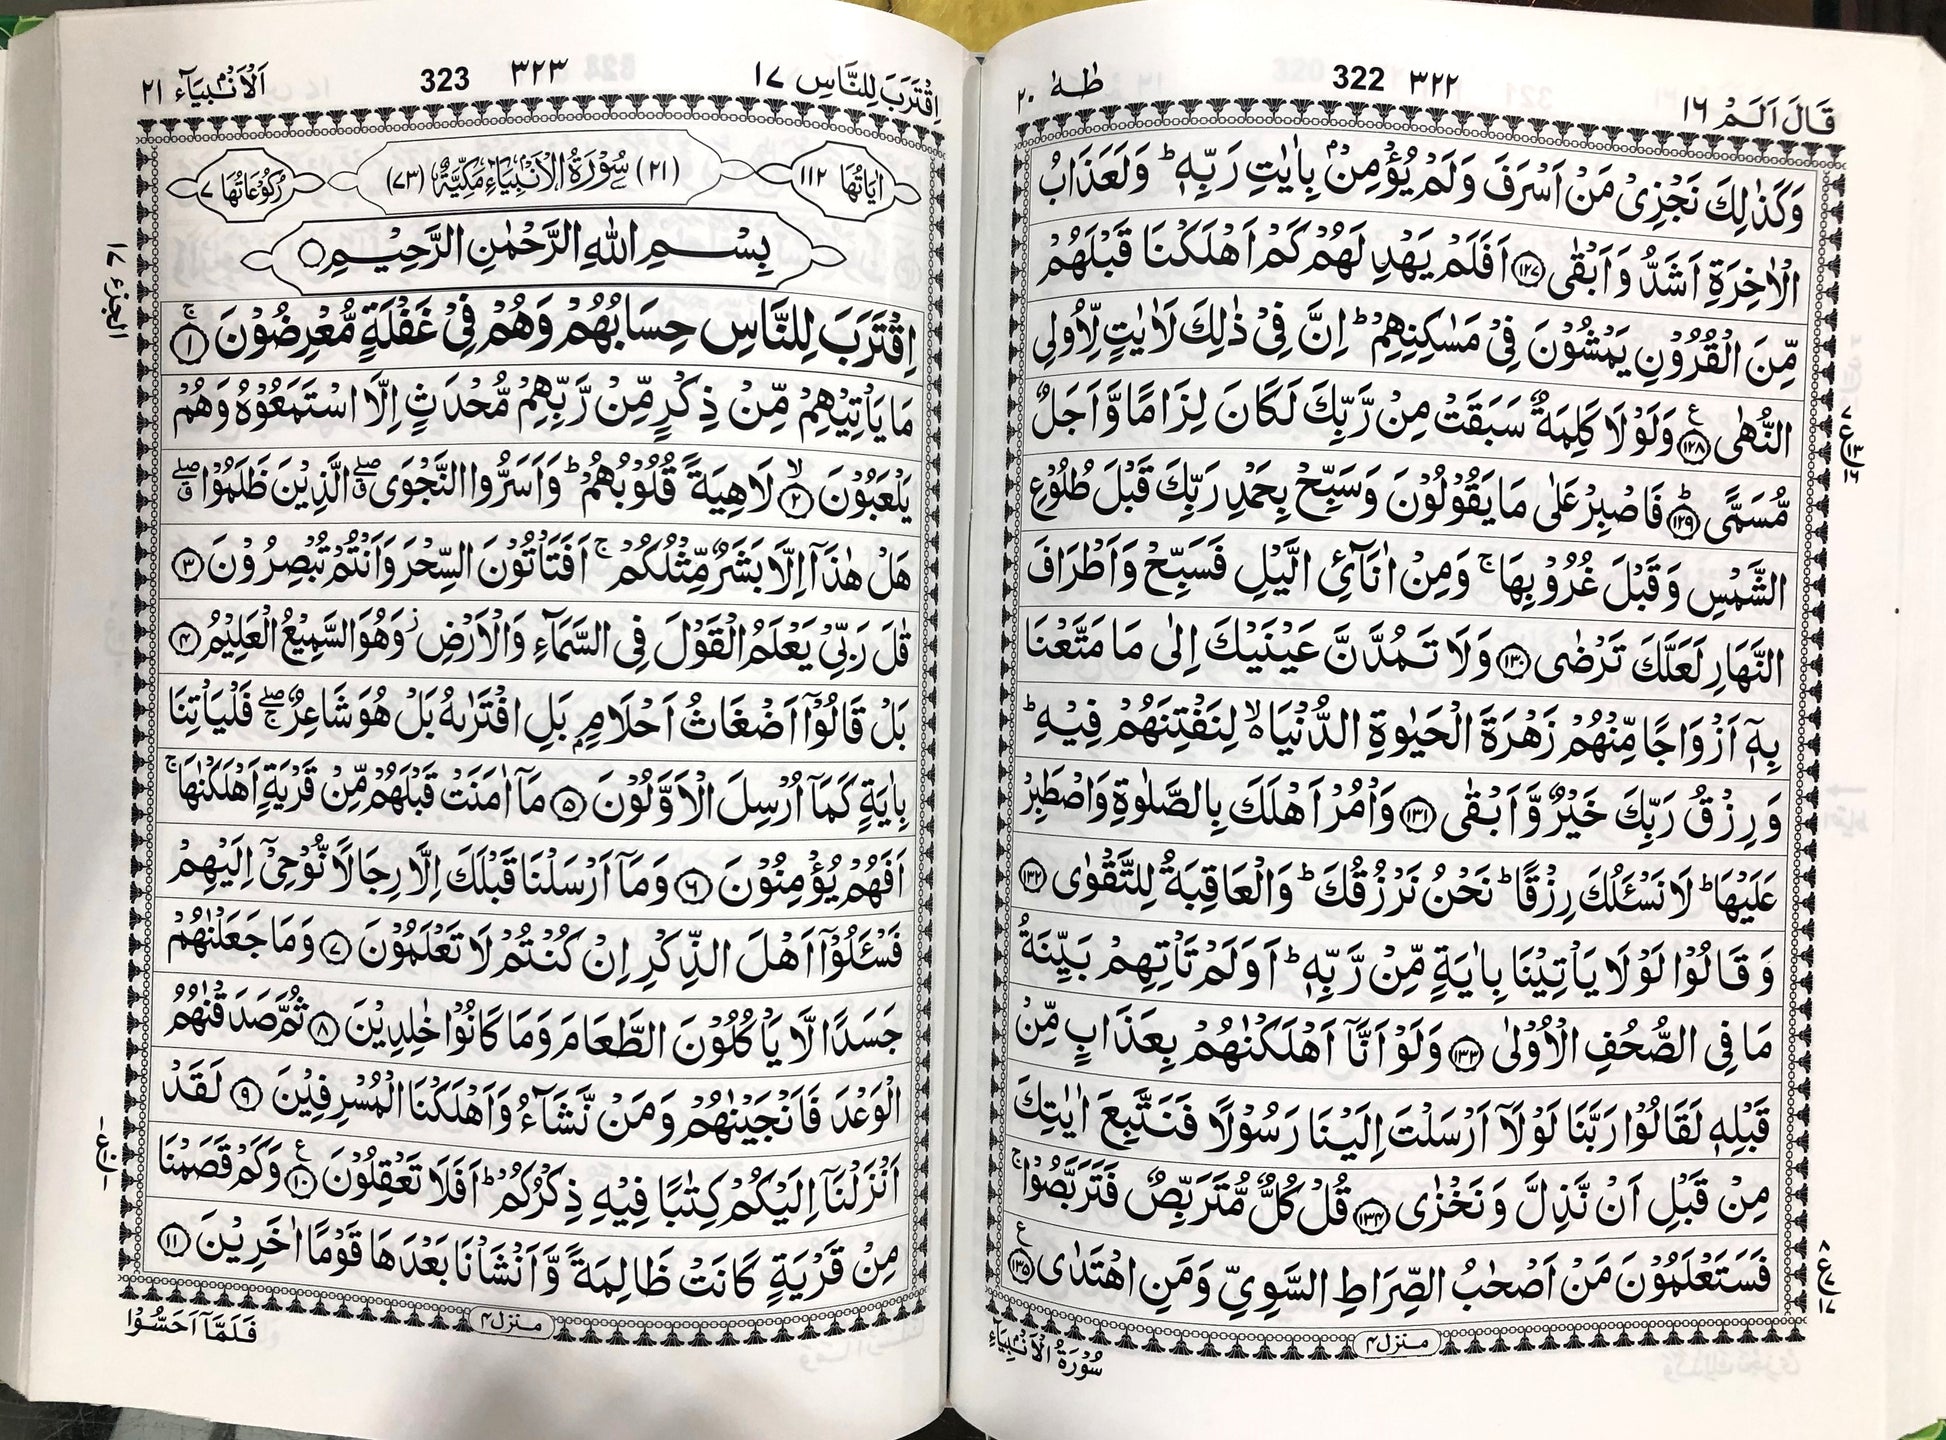 قَالَ اَلَمْ ١٦
322 ٣٢٢
طٰهٰ ٢٠
وَكَذٰلِكَ نَجْزِيْ مَنْ اَسْرَفَ وَلَمْ يُؤْمِنْۢ بِاٰيٰتِ رَبِّهٖ ؕ وَلَعَذَابُ
الْاٰخِرَةِ اَشَدُّ وَاَبْقٰى ﴿١٢٧﴾ اَفَلَمْ يَهْدِ لَهُمْ كَمْ اَهْلَكْنَا قَبْلَهُمْ
مِّنَ الْقُرُوْنِ يَمْشُوْنَ فِيْ مَسٰكِنِهِمْ ؕ اِنَّ فِيْ ذٰلِكَ لَاٰيٰتٍ لِّاُولِي
النُّهٰى ﴿١٢٨﴾ ع وَلَوْلَا كَلِمَةٌ سَبَقَتْ مِنْ رَّبِّكَ لَكَانَ لِزَامًا وَّاَجَلٌ
مُّسَمًّى ؕ ﴿١٢٩﴾ فَاصْبِرْ عَلٰى مَا يَقُوْلُوْنَ وَسَبِّحْ بِحَمْدِ رَبِّكَ قَبْلَ طُلُوْعِ
الشَّمْسِ وَقَبْلَ غُرُوْبِهَا ۚ وَمِنْ اٰنَآئِ الَّيْلِ فَسَبِّحْ وَاَطْرَافَ
النَّهَارِ لَعَلَّكَ تَرْضٰى ﴿١٣٠﴾ وَلَا تَمُدَّنَّ عَيْنَيْكَ اِلٰى مَا مَتَّعْنَا
بِهٖٓ اَزْوَاجًا مِّنْهُمْ زَهْرَةَ الْحَيٰوةِ الدُّنْيَا ۙ لِنَفْتِنَهُمْ فِيْهِ ؕ
وَرِزْقُ رَبِّكَ خَيْرٌ وَّاَبْقٰى ﴿١٣١﴾ وَاْمُرْ اَهْلَكَ بِالصَّلٰوةِ وَاصْطَبِرْ
عَلَيْهَا ؕ لَا نَسْـَٔلُكَ رِزْقًا ؕ نَحْنُ نَرْزُقُكَ ؕ وَالْعَاقِبَةُ لِلتَّقْوٰى ﴿١٣٢﴾
وَقَالُوْا لَوْلَا يَاْتِيْنَا بِاٰيَةٍ مِّنْ رَّبِّهٖ ؕ اَوَلَمْ تَاْتِهِمْ بَيِّنَةُ
مَا فِي الصُّحُفِ الْاُوْلٰى ﴿١٣٣﴾ وَلَوْ اَنَّآ اَهْلَكْنٰهُمْ بِعَذَابٍ مِّنْ
قَبْلِهٖ لَقَالُوْا رَبَّنَا لَوْلَآ اَرْسَلْتَ اِلَيْنَا رَسُوْلًا فَنَتَّبِعَ اٰيٰتِكَ
مِنْ قَبْلِ اَنْ نَّذِلَّ وَنَخْزٰى ﴿١٣٤﴾ قُلْ كُلٌّ مُّتَرَبِّصٌ فَتَرَبَّصُوْا ۚ
فَسَتَعْلَمُوْنَ مَنْ اَصْحٰبُ الصِّرَاطِ السَّوِيِّ وَمَنِ اهْتَدٰى ﴿١٣٥﴾ ع
منزل ٤
سُوْرَةُ الْاَنْۢبِيَآءِ
اِقْتَرَبَ لِلنَّاسِ ١٧
323 ٣٢٣
اَلْاَنْۢبِيَآء ٢١
اٰيَاتُهَا ١١٢
(٢١) سُوْرَةُ الْاَنْۢبِيَآءِ مَكِّيَّةٌ (٧٣)
رُكُوْعَاتُهَا ٧
بِسْمِ اللهِ الرَّحْمٰنِ الرَّحِيْمِ
اِقْتَرَبَ لِلنَّاسِ حِسَابُهُمْ وَهُمْ فِيْ غَفْلَةٍ مُّعْرِضُوْنَ ۚ ﴿١﴾
مَا يَاْتِيْهِمْ مِّنْ ذِكْرٍ مِّنْ رَّبِّهِمْ مُّحْدَثٍ اِلَّا اسْتَمَعُوْهُ وَهُمْ
يَلْعَبُوْنَ ۙ ﴿٢﴾ لَاهِيَةً قُلُوْبُهُمْ ؕ وَاَسَرُّوا النَّجْوَى ۖق الَّذِيْنَ ظَلَمُوْا ۖق
هَلْ هٰذَآ اِلَّا بَشَرٌ مِّثْلُكُمْ ۚ اَفَتَاْتُوْنَ السِّحْرَ وَاَنْتُمْ تُبْصِرُوْنَ ﴿٣﴾
قٰلَ رَبِّيْ يَعْلَمُ الْقَوْلَ فِي السَّمَآءِ وَالْاَرْضِ ز وَهُوَ السَّمِيْعُ الْعَلِيْمُ ﴿٤﴾
بَلْ قَالُوْٓا اَضْغَاثُ اَحْلَامٍۭ بَلِ افْتَرٰىهُ بَلْ هُوَ شَاعِرٌ ۖج فَلْيَاْتِنَا
بِاٰيَةٍ كَمَآ اُرْسِلَ الْاَوَّلُوْنَ ﴿٥﴾ مَآ اٰمَنَتْ قَبْلَهُمْ مِّنْ قَرْيَةٍ اَهْلَكْنٰهَا ۚ
اَفَهُمْ يُؤْمِنُوْنَ ﴿٦﴾ وَمَآ اَرْسَلْنَا قَبْلَكَ اِلَّا رِجَالًا نُّوْحِيْٓ اِلَيْهِمْ
فَسْـَٔلُوْٓا اَهْلَ الذِّكْرِ اِنْ كُنْتُمْ لَا تَعْلَمُوْنَ ﴿٧﴾ وَمَا جَعَلْنٰهُمْ
جَسَدًا لَّا يَاْكُلُوْنَ الطَّعَامَ وَمَا كَانُوْا خٰلِدِيْنَ ﴿٨﴾ ثُمَّ صَدَقْنٰهُمُ
الْوَعْدَ فَاَنْجَيْنٰهُمْ وَمَنْ نَّشَآءُ وَاَهْلَكْنَا الْمُسْرِفِيْنَ ﴿٩﴾ لَقَدْ
اَنْزَلْنَآ اِلَيْكُمْ كِتٰبًا فِيْهِ ذِكْرُكُمْ ؕ اَفَلَا تَعْقِلُوْنَ ﴿١٠﴾ ع وَكَمْ قَصَمْنَا
مِنْ قَرْيَةٍ كَانَتْ ظَالِمَةً وَّاَنْشَاْنَا بَعْدَهَا قَوْمًا اٰخَرِيْنَ ﴿١١﴾
الجزء ١٧
منزل ٤
فَلَمَّآ اَحَسُّوْا